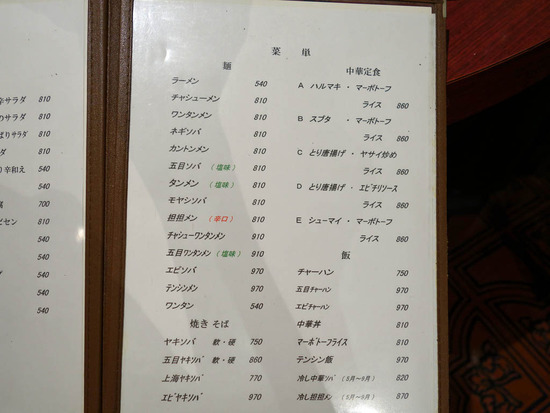 辛サラダ 810
のサラダ 810
ぱりサラダ 810
ダ 810
り辛和え 540
700
ピセン 810
540
540
540
540
菜 単
麺
ラーメン 540
チャシューメン 810
ワンタンメン 810
ネギソバ 810
カントンメン 810
五目ソバ (塩味) 810
タンメン (塩味) 810
モヤシソバ 810
担担メン (辛口) 810
チャシューワンタンメン 910
五目ワンタンメン (塩味) 910
エビソバ 970
テンシンメン 970
ワンタン 540
焼きそば
ヤキソバ 軟・硬 750
五目ヤキソバ 軟・硬 860
上海ヤキソバ 770
エビヤキソバ 970
中華定食
A ハルマキ ・ マーボトーフ
ライス 860
B スブタ ・ マーボトーフ
ライス 860
C とり唐揚げ ・ ヤサイ炒め
ライス 860
D とり唐揚げ ・ エビチリソース
ライス 860
E シューマイ ・ マーボトーフ
ライス 860
飯
チャーハン 750
五目チャーハン 970
エビチャーハン 970
中華丼 810
マーボトーフライス 810
テンシン飯 970
冷し中華ソバ (5月〜9月) 820
冷し担担メン (5月〜9月) 870